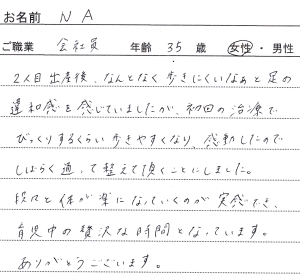 お名前 N A
ご職業 会社員 年齢 35 歳 女性・男性
2人目出産後、なんとなく歩きにくいなぁと足の
違和感を感じていましたが、初回の治療で
びっくりするくらい歩きやすくなり、感動したので
しばらく通って整えて頂くことにしました。
段々と体が楽になっていくのが実感でき、
育児中の贅沢な時間となっています。
ありがとうございます。